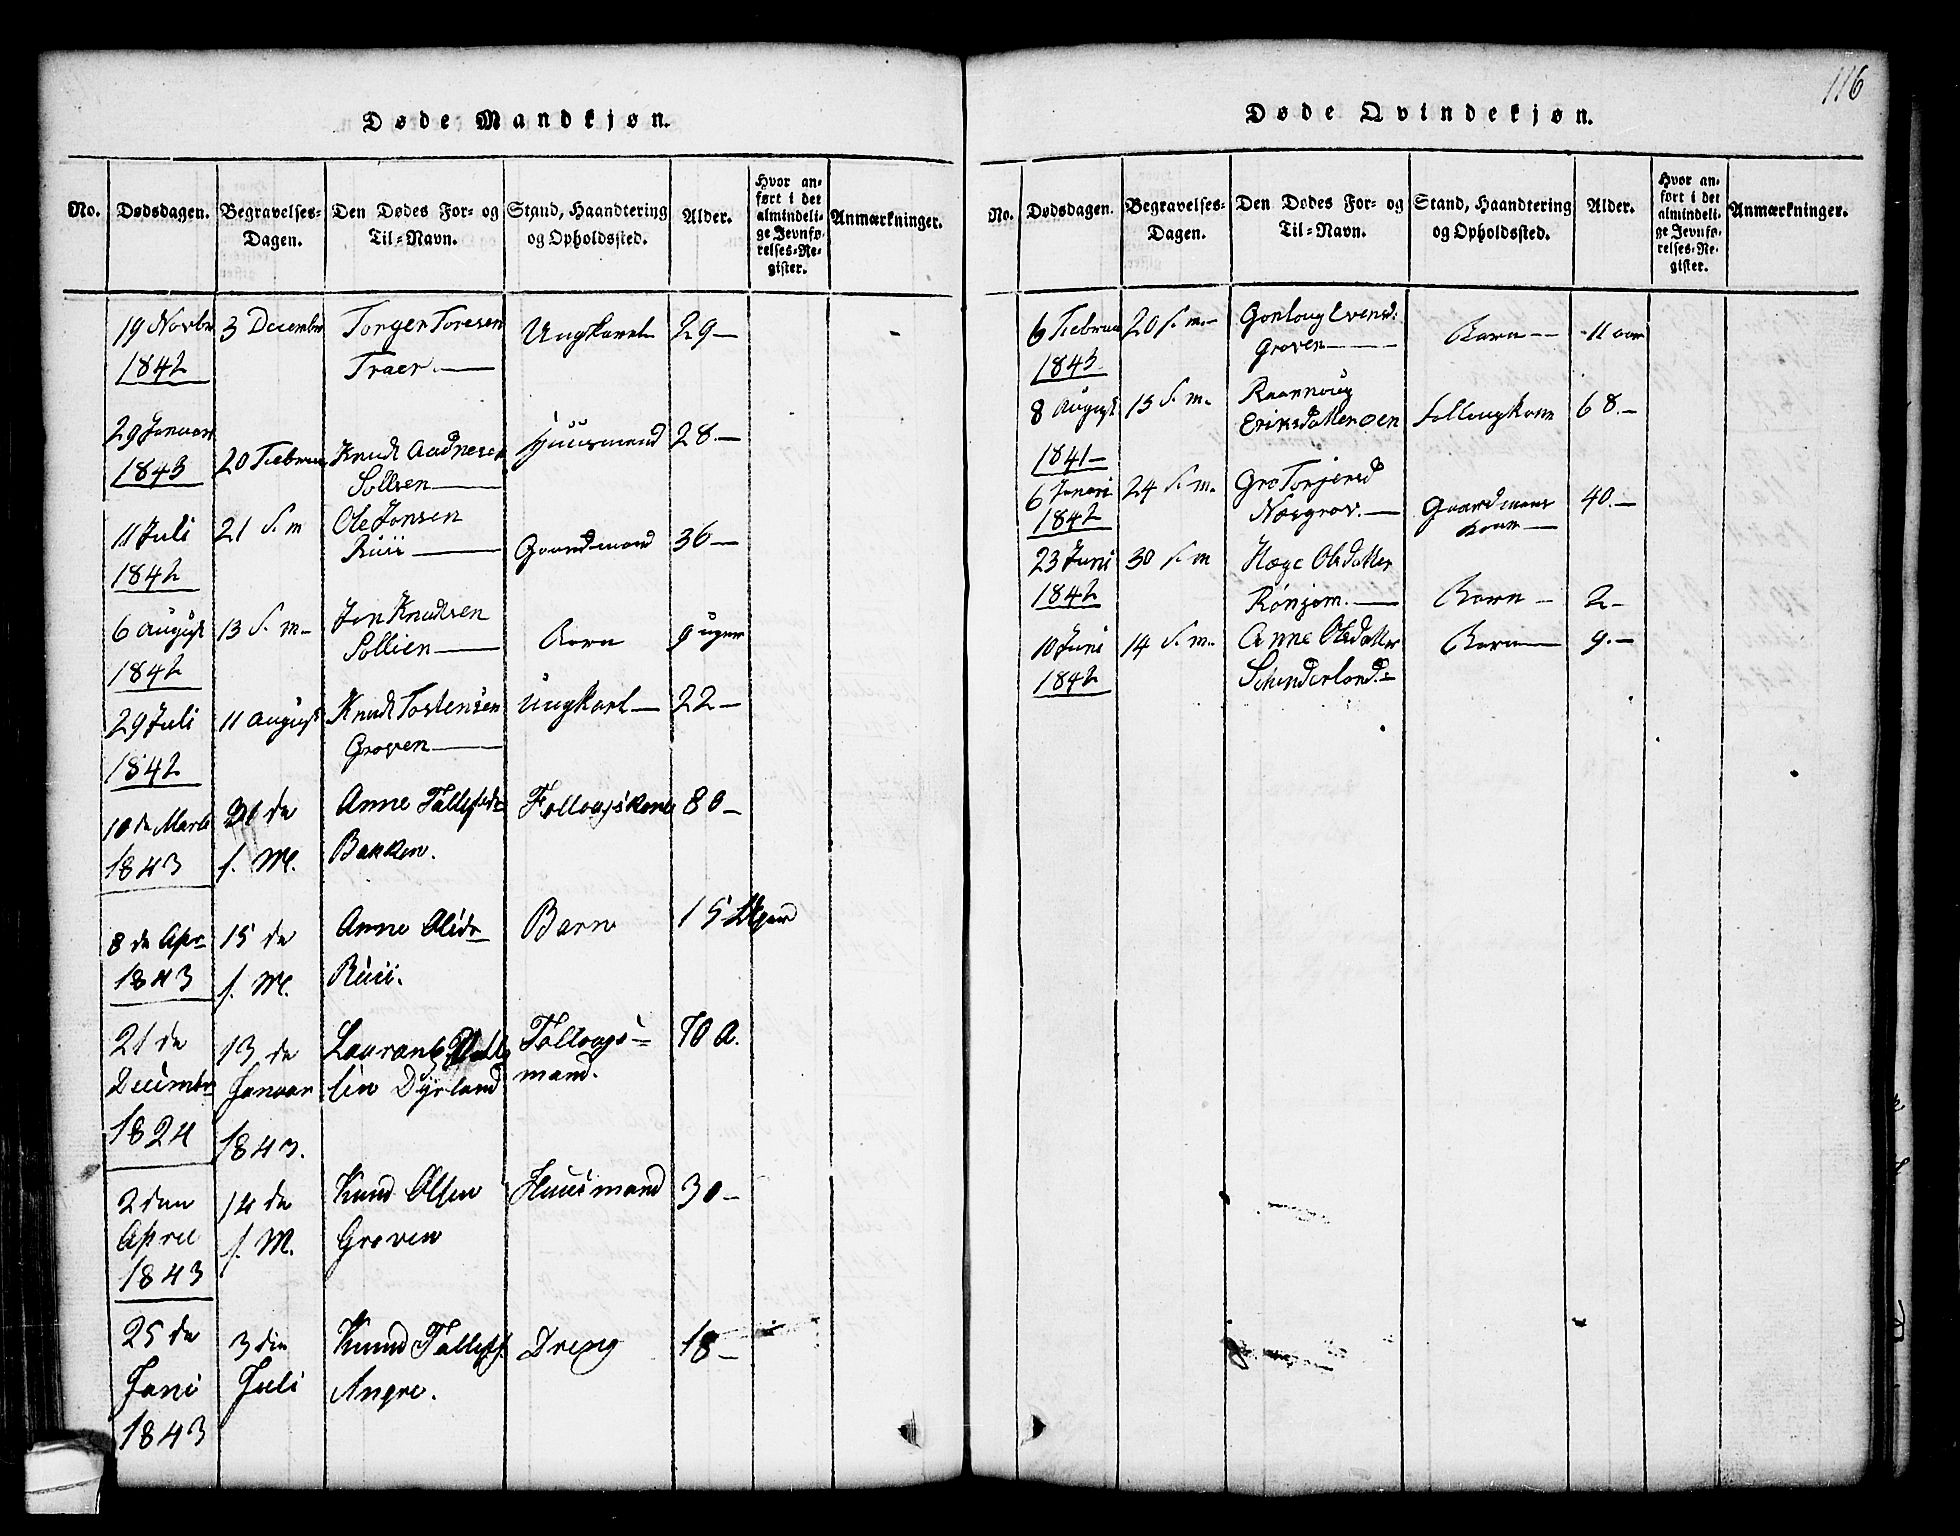 116
Døde Mandkjøn.
No. Dødsdagen. Begravelses-Dagen. Den Dødes For- og Til-Navn. Stand, Haandtering og Opholdssted. Alder. Hvor anført i det almindelige Jevnførelses-Register. Anmærkninger.
19 Novbr 3 December Torger Toresen Ungkarl 29—
1842 Traer.—
29 Januar 20 Februa Knudt Aadnesen Huusmand 28—
1843 Sollien—
11 Juli 21 S. m Ole Jonsen Gaardmand 36—
1842 Ruii—
6 August 13 S. m— Jon Knudsen Barn 9 uger
1842 Sollien—
29 Juli 11 August Knudt Tostensen Ungkarl— 22—
1842 Groven—
10 de Marts 21 de Anne Tallefsdr Follougskone 80—
1843 s. M. Bakken.
8 de Apr 15 de Anne Olsdr Barn 15 Uger
1843 s. M. Ruii.
21 de 13 de Laurants Follougs- 70 A.
Decimbr Januar sin Dyrland mand.
1824 1843.
2 den 14 de Knud Olsen Huusmand 30—
April s. M. Groven
1843
25 de 3 die Knud Tallefs. Dreng 18—
Juni Juli Angre.
1843
Døde Qvindekjøn.
No. Dødsdagen. Begravelses-Dagen. Den Dødes For- og Til-Navn. Stand, Haandtering og Opholdssted. Alder. Hvor anført i det almindelige Jevnførelses-Register. Anmærkninger.
6 Februa 20 S. m— Gonloug Evensd: Barn— 11 aar
1843. Groven—
8 August 13 S. m. Raannoug Follougkone 68.—
1841— Eriksdatter Øen
6 Januari 24 S. m. Gro Torjersd Gaardmans 40.—
1842 Næsgrav.— kone—
23 Juni 30 S. m Hæge Olsdatter
1842 Rønjom.— Barn— 2—
10 Juni 14 S. m. Anne Olsdatter Barn— 9.—
1842 Schinderland.—